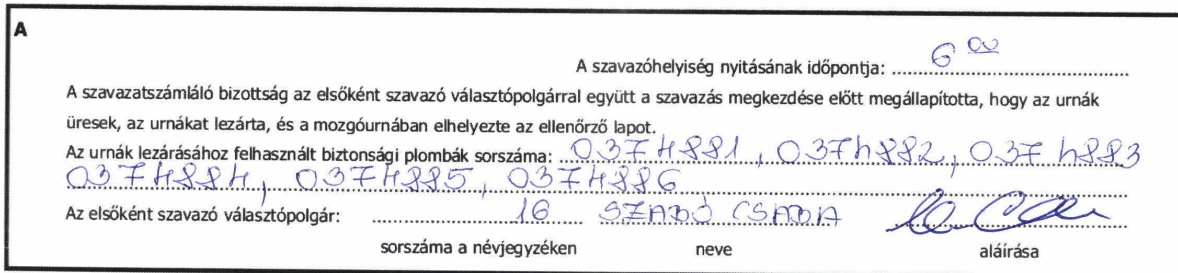 A
A szavazóhelyiség nyitásának időpontja: 6 00
A szavazatszámláló bizottság az elsőként szavazó választópolgárral együtt a szavazás megkezdése előtt megállapította, hogy az urnák
üresek, az urnákat lezárta, és a mozgóurnában elhelyezte az ellenőrző lapot.
Az urnák lezárásához felhasznált biztonsági plombák sorszáma: 0374881, 0374882, 0374883
0374884, 0374885, 0374886
Az elsőként szavazó választópolgár: 16 SZABÓ CSABA
sorszáma a névjegyzéken neve aláírása